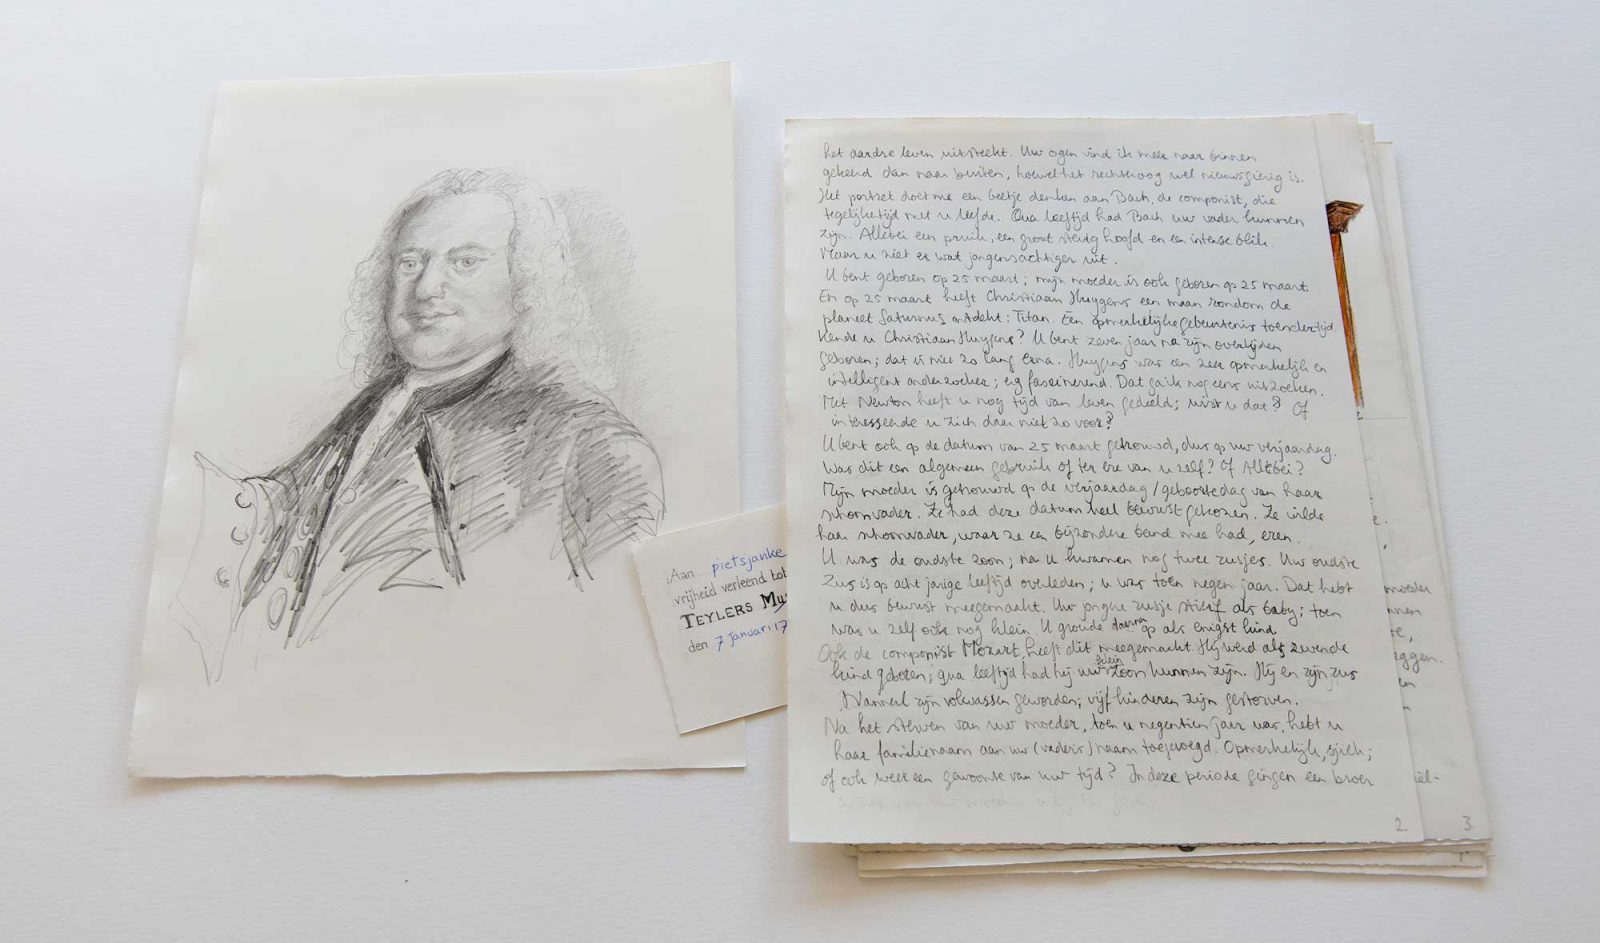 Aan pietsjanke
vrijheid verleend tot
TEYLERS Mus
den 7 januari 17
het aardse leven uitstrekt. Uw ogen vind ik meer naar binnen
gekeerd dan naar buiten, hoewel het rechteroog wel nieuwsgierig is.
Het portret doet me een beetje denken aan Bach, de componist, die
tegelijkertijd met u leefde. Qua leeftijd had Bach uw vader kunnen
zijn. Allebei een pruik, een groot stevig hoofd en een intense blik.
Maar u ziet er wat jongensachtiger uit.
U bent geboren op 25 maart; mijn moeder is ook geboren op 25 maart.
En op 25 maart heeft Christiaan Huygens een maan rondom de
planeet Saturnus ontdekt: Titan. Een opmerkelijke gebeurtenis toendertijd.
Kende u Christiaan Huygens? U bent zeven jaar na zijn overlijden
geboren; dat is niet zo lang erna. Huygens was een zeer opmerkelijk en
intelligent onderzoeker; erg fascinerend. Dat ga ik nog eens uitzoeken.
Met Newton heeft u nog tijd van leven gedeeld; wist u dat? Of
interesseerde u zich daar niet zo voor?
U bent ook op de datum van 25 maart getrouwd, dus op uw verjaardag.
Was dit een algemeen gebruik of ter ere van u zelf? Of Allebei?
Mijn moeder is getrouwd op de verjaardag/geboortedag van haar
schoonvader. Ze had deze datum heel bewust gekozen. Ze wilde
haar schoonvader, waar ze een bijzondere band mee had, eren.
U was de oudste zoon; na u kwamen nog twee zusjes. Uw oudste
zus is op acht jarige leeftijd overleden; u was toen negen jaar. Dat hebt
u dus bewust meegemaakt. Uw jongere zusje stierf als baby; toen
was u zelf ook nog klein. U groeide daarna op als enigst kind.
Ook de componist Mozart heeft dit meegemaakt. Hij werd als zevende
kind geboren; qua leeftijd had hij uw kleinzoon kunnen zijn. Hij en zijn zus
Nannerl zijn volwassen geworden; vijf kinderen zijn gestorven.
Na het sterven van uw moeder, toen u negentien jaar was, hebt u
haar familienaam aan uw (vaders) naam toegevoegd. Opmerkelijk, sjiek;
of ook weer een gewoonte van uw tijd? In deze periode gingen een broer
2.
3.
moeder
nnen
te,
eggen.
en
iël-